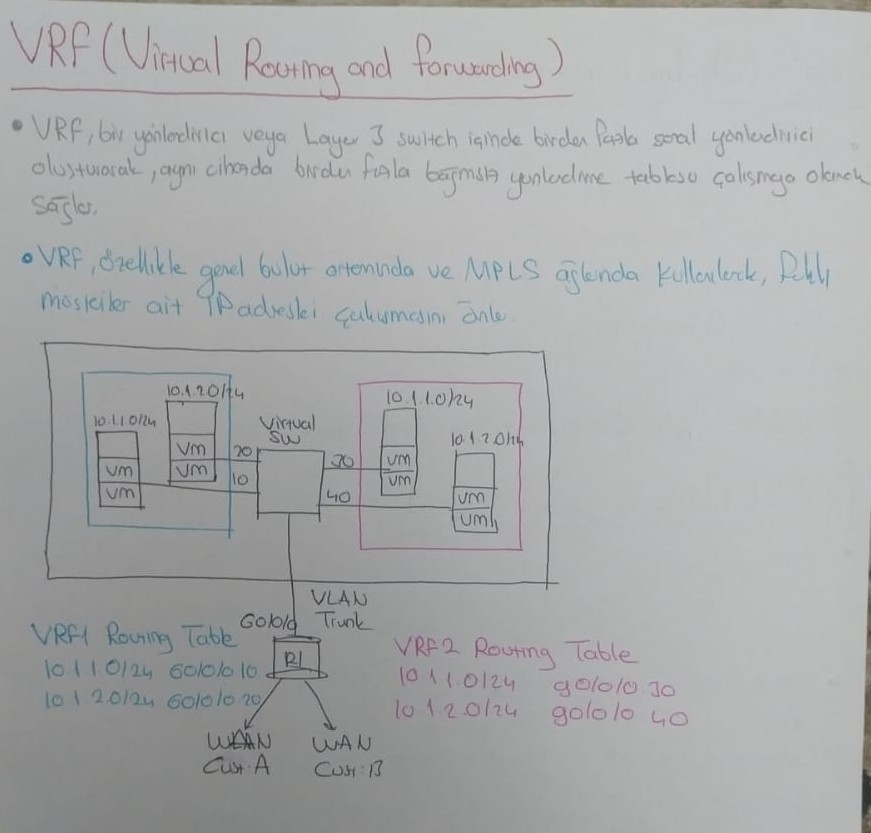 VRF (Virtual Routing and forwarding)
• VRF, bir yönlendirici veya Layer 3 switch içinde birden fazla sanal yönlendirici
oluşturarak, aynı cihazda birden fazla bağımsız yönlendirme tablosu çalışmaya olanak
sağlar.
• VRF, özellikle genel bulut ortamında ve MPLS ağlarında kullanılarak, farklı
müşteriler ait IP adresleri çakışmasını önler
10.1.2.0/24
10.1.1.0/24
10.1.1.0/24
10.1.2.0/24
Virtual
SW
VM
VM
VM
VM
20
10
30
40
VM
VM
VM
VM
VLAN
G0/0/0 Trunk
R1
VRF1 Routing Table
10.1.1.0/24 G0/0/0.10
10.1.2.0/24 G0/0/0.20
VRF2 Routing Table
10.1.1.0/24 g0/0/0.30
10.1.2.0/24 g0/0/0.40
WAN
Cust:A
WAN
Cust:B